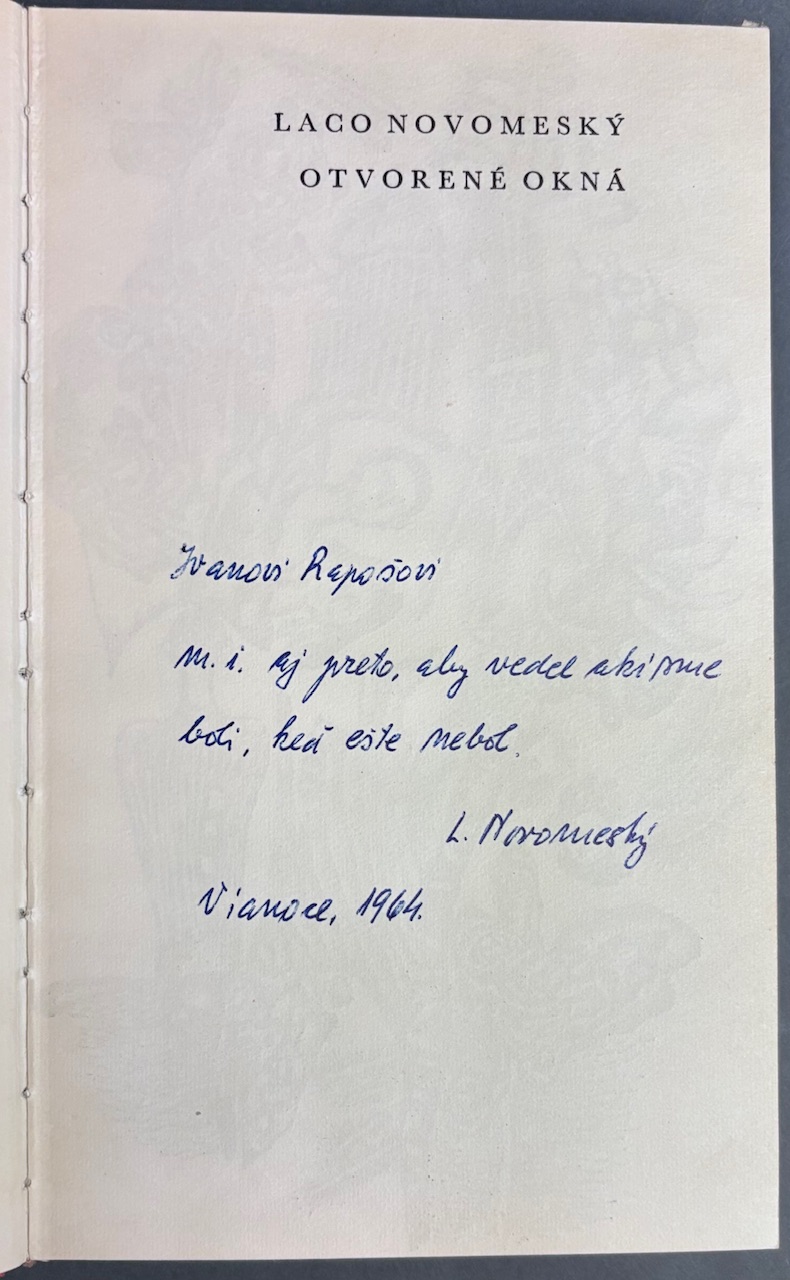 LACO NOVOMESKÝ
OTVORENÉ OKNÁ
Ivanovi Rapošovi
m. i. aj preto, aby vedel akí sme
boli, keď ešte nebol.
L. Novomeský
Vianoce, 1964.